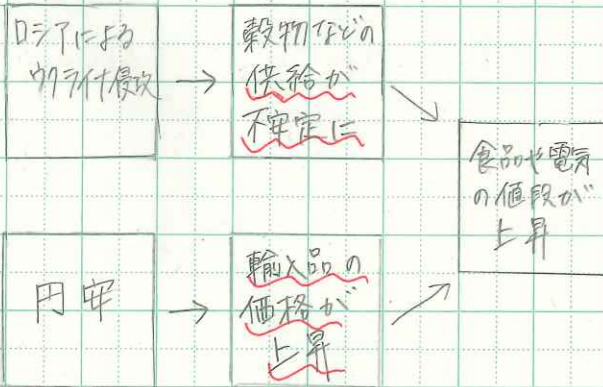 ロシアによる
ウクライナ侵攻
→
穀物などの
供給が
不安定に
円安
→
輸入品の
価格が
上昇
食品や電気
の値段が
上昇